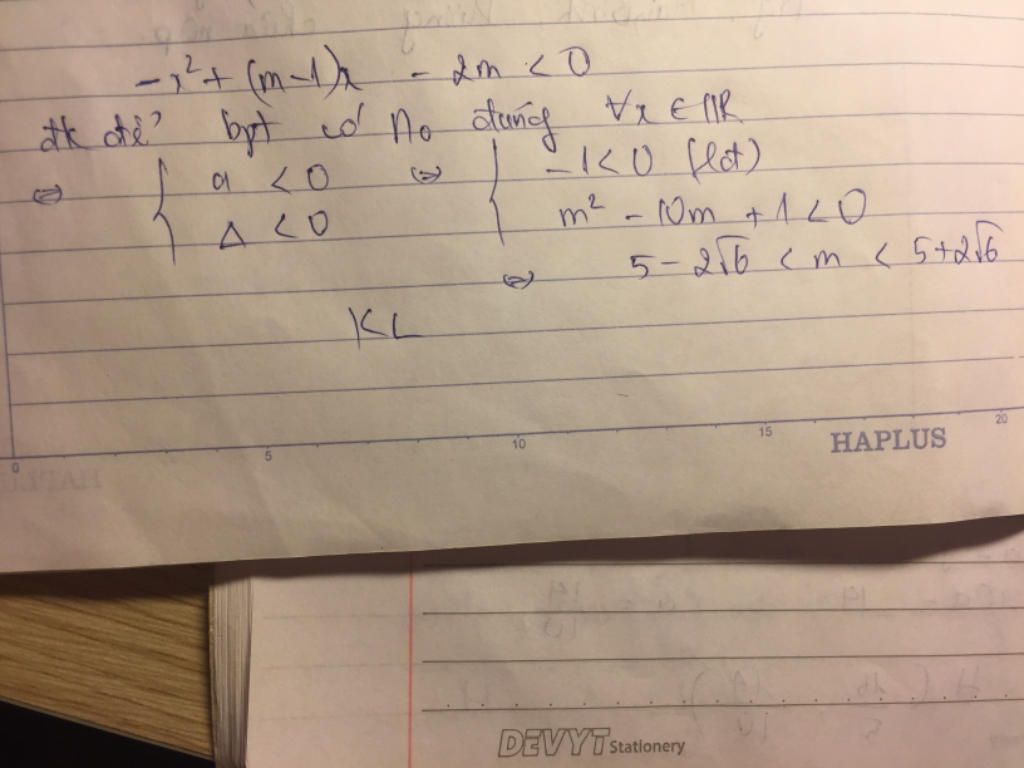 -x² + (m-1)x - 2m < 0
đk để bpt có no đúng ∀x ∈ IR
⇔ { a < 0 ⇔ { -1 < 0 (lđ)
Δ < 0 m² - 10m + 1 < 0
⇔ 5 - 2√6 < m < 5+2√6
KL
0 5 10 15 20
HAPLUS
DEVYT Stationery